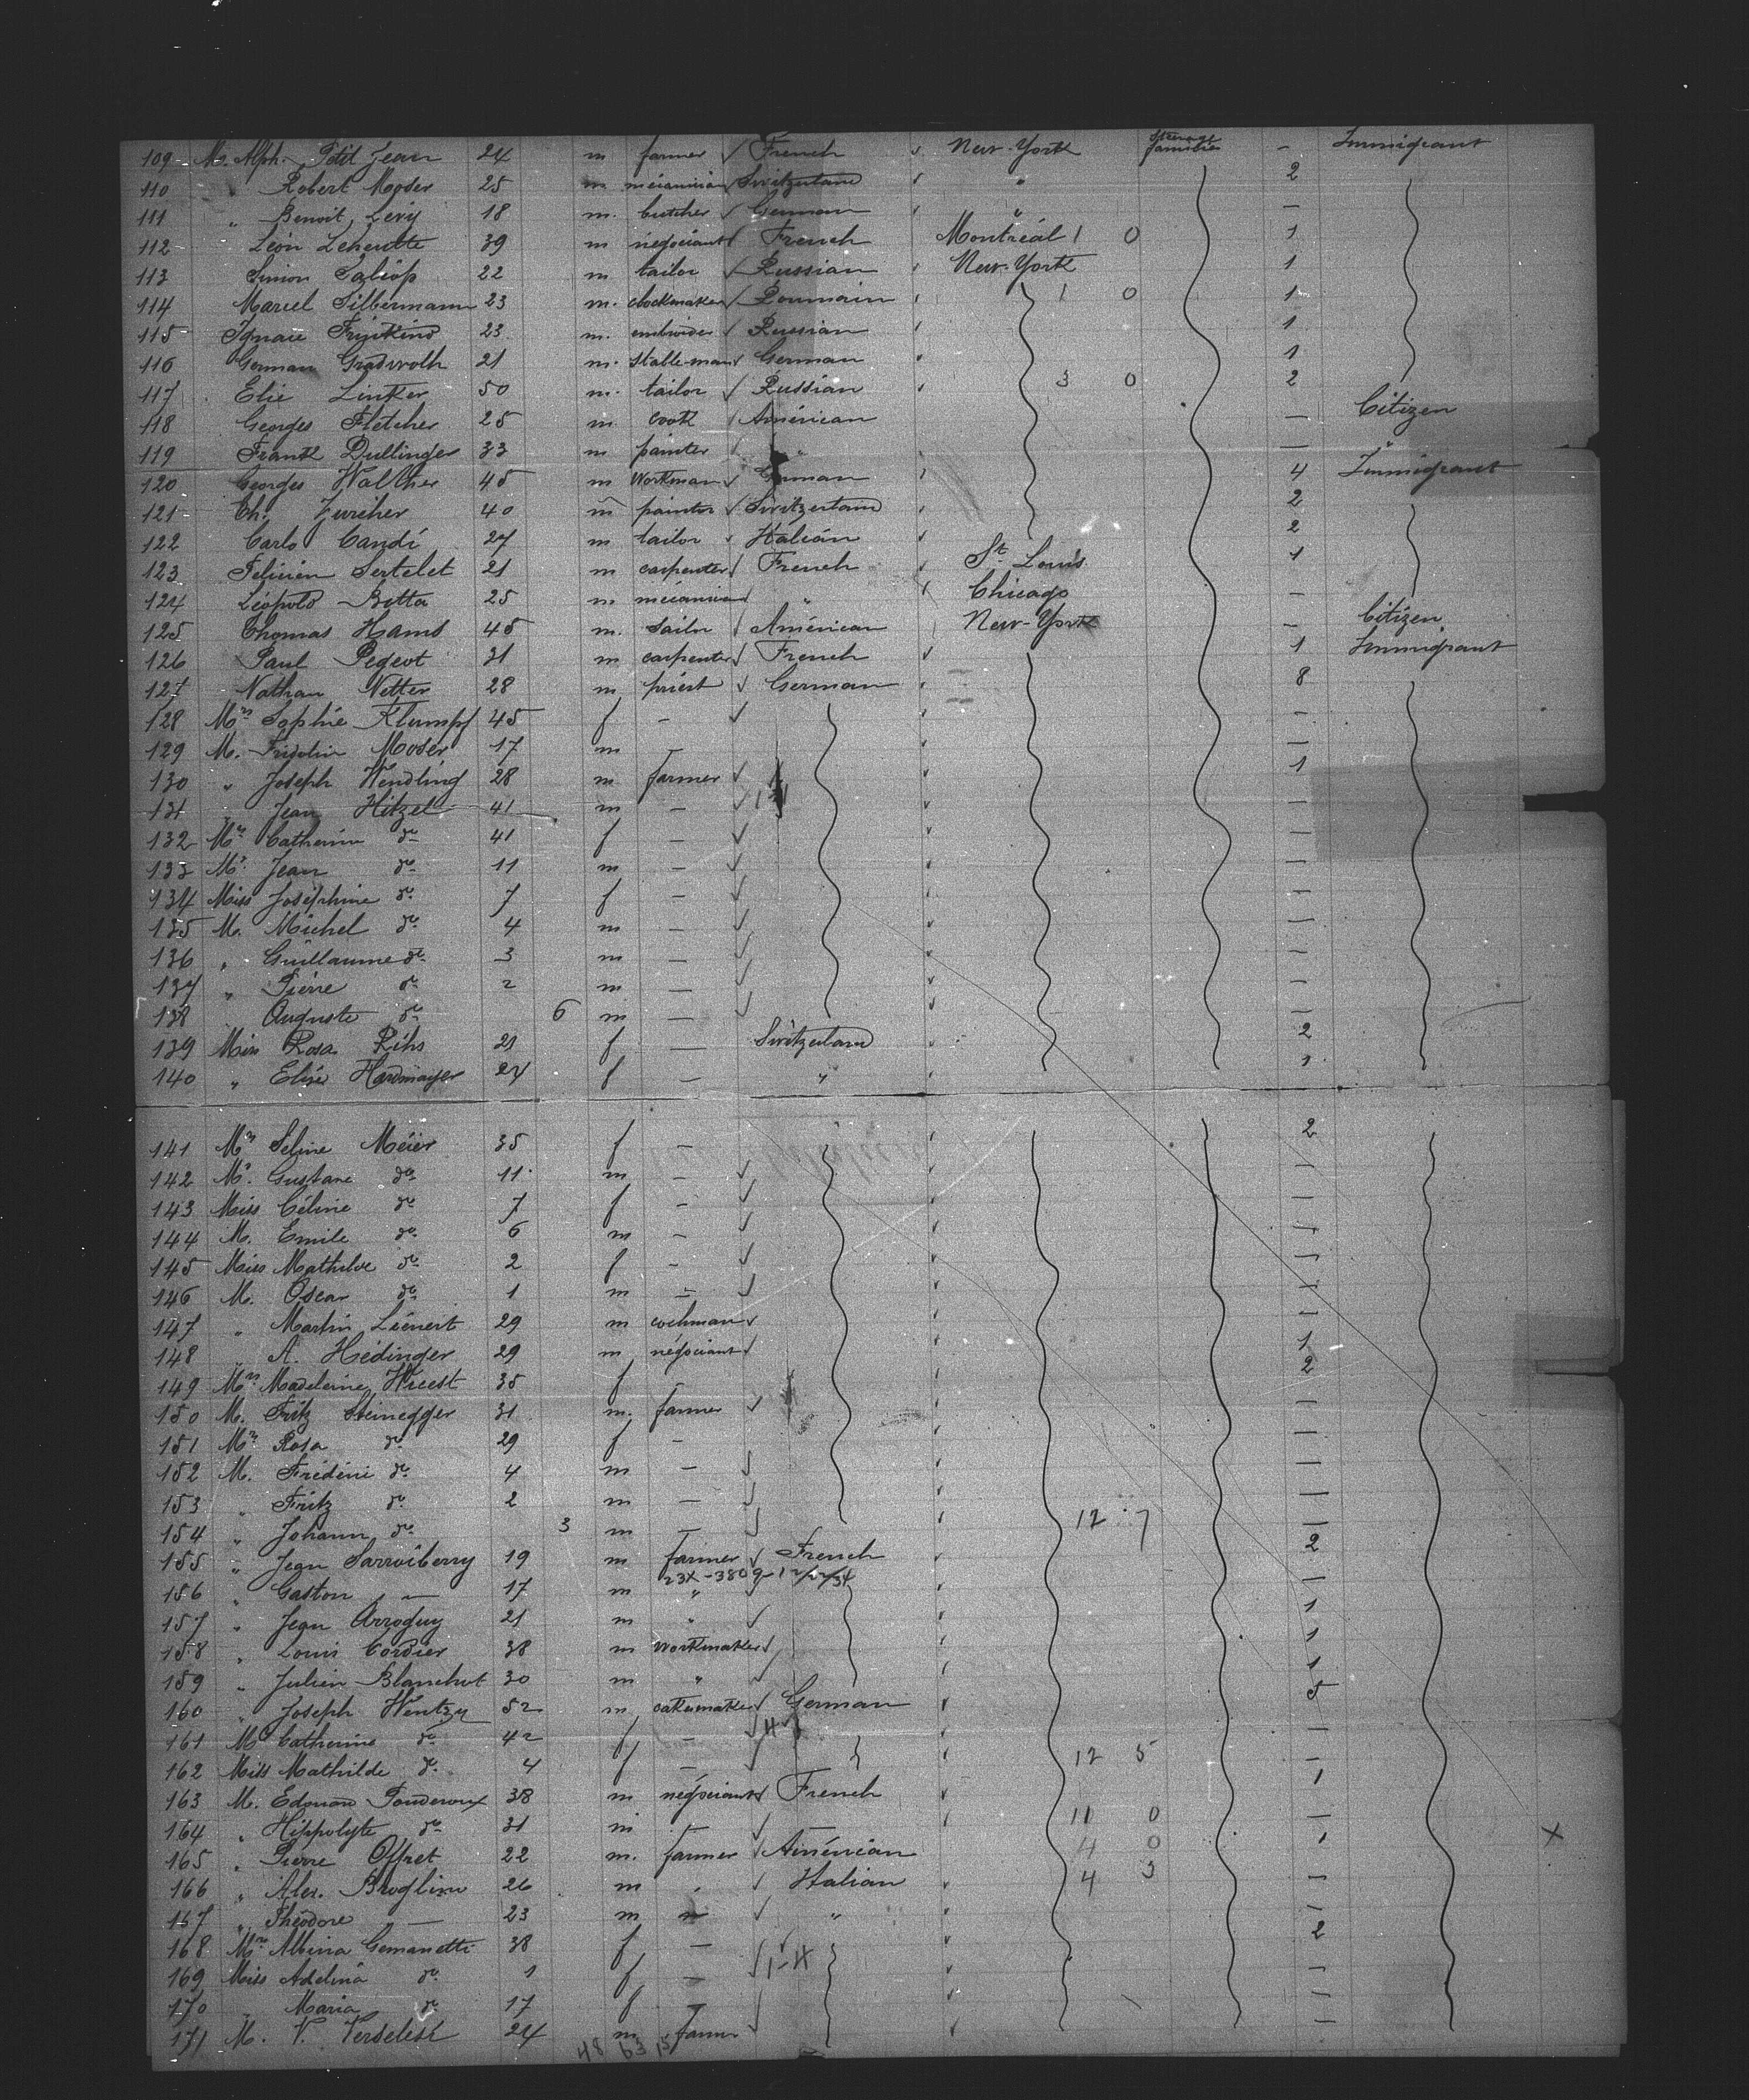 109 M. Alph. Petit Jean 24 m farmer French New-York Steerage families - Immigrant
110 " Robert Moser 25 m mécanicien Switzerland " 2
111 " Benoit Levy 18 m. butcher German " -
112 Léon Leheutte 39 m négociant French Montréal 1 0 1
113 Simon 22 m tailor Russian New-York 1
114 Marcel Silbermann 23 m. clockmaker Roumain 1 0 1
115 Ignace 23 m. embroider Russian 1
116 German 21 m. Stable-man German 1
117 Elie Linker 50 m. tailor Russian 3 0 2
118 Georges Fletcher 25 m. cook Américan - Citizen
119 Frank Dullinger 33 m painter " - "
120 Georges Walther 45 m Workman German 4 Immigrant
121 Ch. Zuricher 40 m painter Switzerland 2
122 Carlo Candi 27 m tailor Italian 2
123 Felicien Sertelet 21 m carpenter French St. Louis 1
124 Léopold Botta 25 m mécanicien " Chicago -
125 Thomas Hams 45 m. Sailor Américan New-York - Citizen
126 Paul Pegeot 31 m carpenter French 1 Immigrant
127 Nathan Netter 28 m priest German 8
128 Mrs Sophie Klumpf 45 f - -
129 M. Fridolin Moser 17 m - -
130 " Joseph Wendling 28 m farmer 1
131 " Jean Hitzel 41 m - -
132 Mrs Catherine do 41 f - -
133 Mr. Jean do 11 m - -
134 Miss Joséphine do 7 f - -
135 M. Michel do 4 m - -
136 " Guillaume do 3 m - -
137 " Pierre do 2 m - -
138 Auguste do 6 m - -
139 Miss Rosa Rihs 21 f - Switzerland 2
140 " Elise Hardmayer 24 f - " 1
141 Mrs Seline Méier 35 f - 2
142 Mr. Gustave do 11 m - -
143 Miss Céline do 7 f - -
144 M. Emile do 6 m - -
145 Miss Mathilde do 2 f - -
146 M. Oscar do 1 m - -
147 " Martin Liénert 29 m cochman -
148 " A. Hédinger 29 m négociant 1
149 Mrs Madeleine 35 f - 2
150 M. Fritz Steinegger 31 m. farmer -
151 Mrs Rosa do 29 f - -
152 M. Frédéric do 4 m - -
153 " Fritz do 2 m - -
154 " Johann do 3 m - 12 7 -
155 " Jean Sarroiberry 19 m farmer French 2
156 " Gaston - 17 m " -
157 " Jean Arroguy 21 m " 1
158 " Louis Cordier 38 m Workmaker 1
159 " Julien Blanchut 30 m " 1
160 " Joseph Wentzy 52 m cakemaker German 5
161 Mrs Catherine do 42 f - -
162 Miss Mathilde do 4 f - 12 5 -
163 M. Edouard 38 m négociant French 1
164 " Hippolyte do 31 m 11 0 -
165 " Pierre Offret 22 m. farmer Américan 4 0 1 X
166 " Alex. 26 m " Italian 4 3 -
167 " Théodore - 23 m " -
168 Mrs Albina Gemanetti 38 f - 2
169 Miss Adelina do 1 f - 1-4 -
170 " Maria do 17 f - -
171 M. V. 24 m farmer -
48 63 15